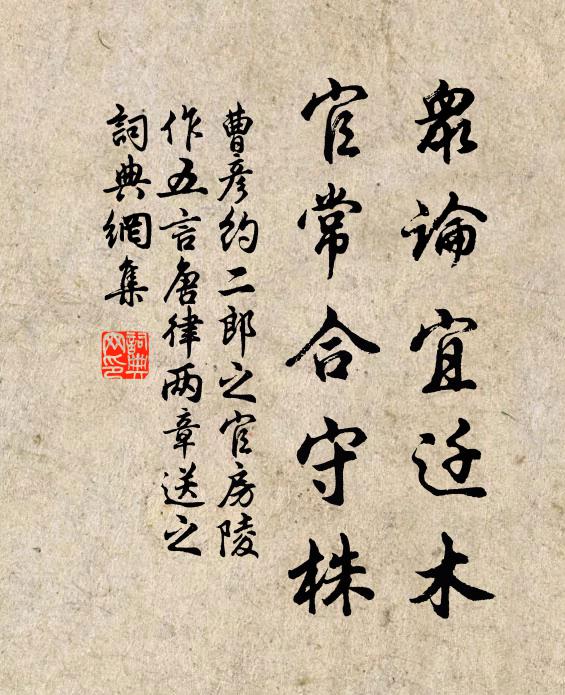 眾論宜迁木
官常合守株
曹彦約二郎之官房陵
作五言唐律两章送之
詞典網集
詞典
网印